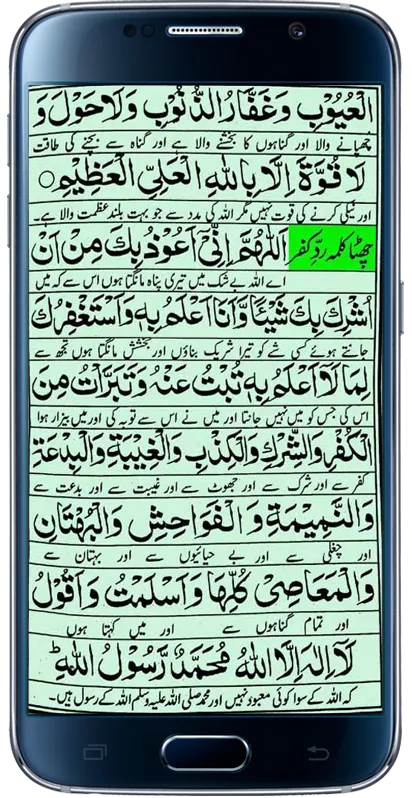 الْعُيُوْبِ وَغَفَّارُ الذُّنُوْبِ وَلَا حَوْلَ وَ
چھپانے والا اور گناہوں کا بخشنے والا ہے اور گناہ سے بچنے کی طاقت
لَا قُوَّةَ اِلَّا بِاللهِ الْعَلِيِّ الْعَظِيْمِ ○
اور نیکی کرنے کی قوت نہیں مگر اللہ کی مدد سے جو بہت بلند عظمت والا ہے۔
چھٹا کلمہ ردِّ کفر اَللّٰهُمَّ اِنِّيْٓ اَعُوْذُ بِكَ مِنْ اَنْ
اے اللہ بے شک میں تیری پناہ مانگتا ہوں اس سے کہ میں
اُشْرِكَ بِكَ شَيْئًا وَّاَنَا اَعْلَمُ بِهٖ وَاَسْتَغْفِرُكَ
جانتے ہوئے کسی شے کو تیرا شریک بناؤں اور بخشش مانگتا ہوں تجھ سے
لِمَا لَآ اَعْلَمُ بِهٖ تُبْتُ عَنْهُ وَتَبَرَّأْتُ مِنَ
اس کی جس کو میں نہیں جانتا اور میں نے اس سے توبہ کی اور میں بیزار ہوا
الْكُفْرِ وَالشِّرْكِ وَالْكِذْبِ وَالْغِيْبَةِ وَالْبِدْعَةِ
کفر سے اور شرک سے اور جھوٹ سے اور غیبت سے اور بدعت سے
وَالنَّمِيْمَةِ وَ الْفَوَاحِشِ وَالْبُهْتَانِ
اور چغلی سے اور بے حیائیوں سے اور بہتان سے
وَالْمَعَاصِيْ كُلِّهَا وَاَسْلَمْتُ وَاَقُوْلُ
اور تمام گناہوں سے اور میں کہتا ہوں
لَآ اِلٰهَ اِلَّا اللهُ مُحَمَّدٌ رَّسُوْلُ اللهِ ؕ
کہ اللہ کے سوا کوئی معبود نہیں اور محمد صلی اللہ علیہ وسلم اللہ کے رسول ہیں۔